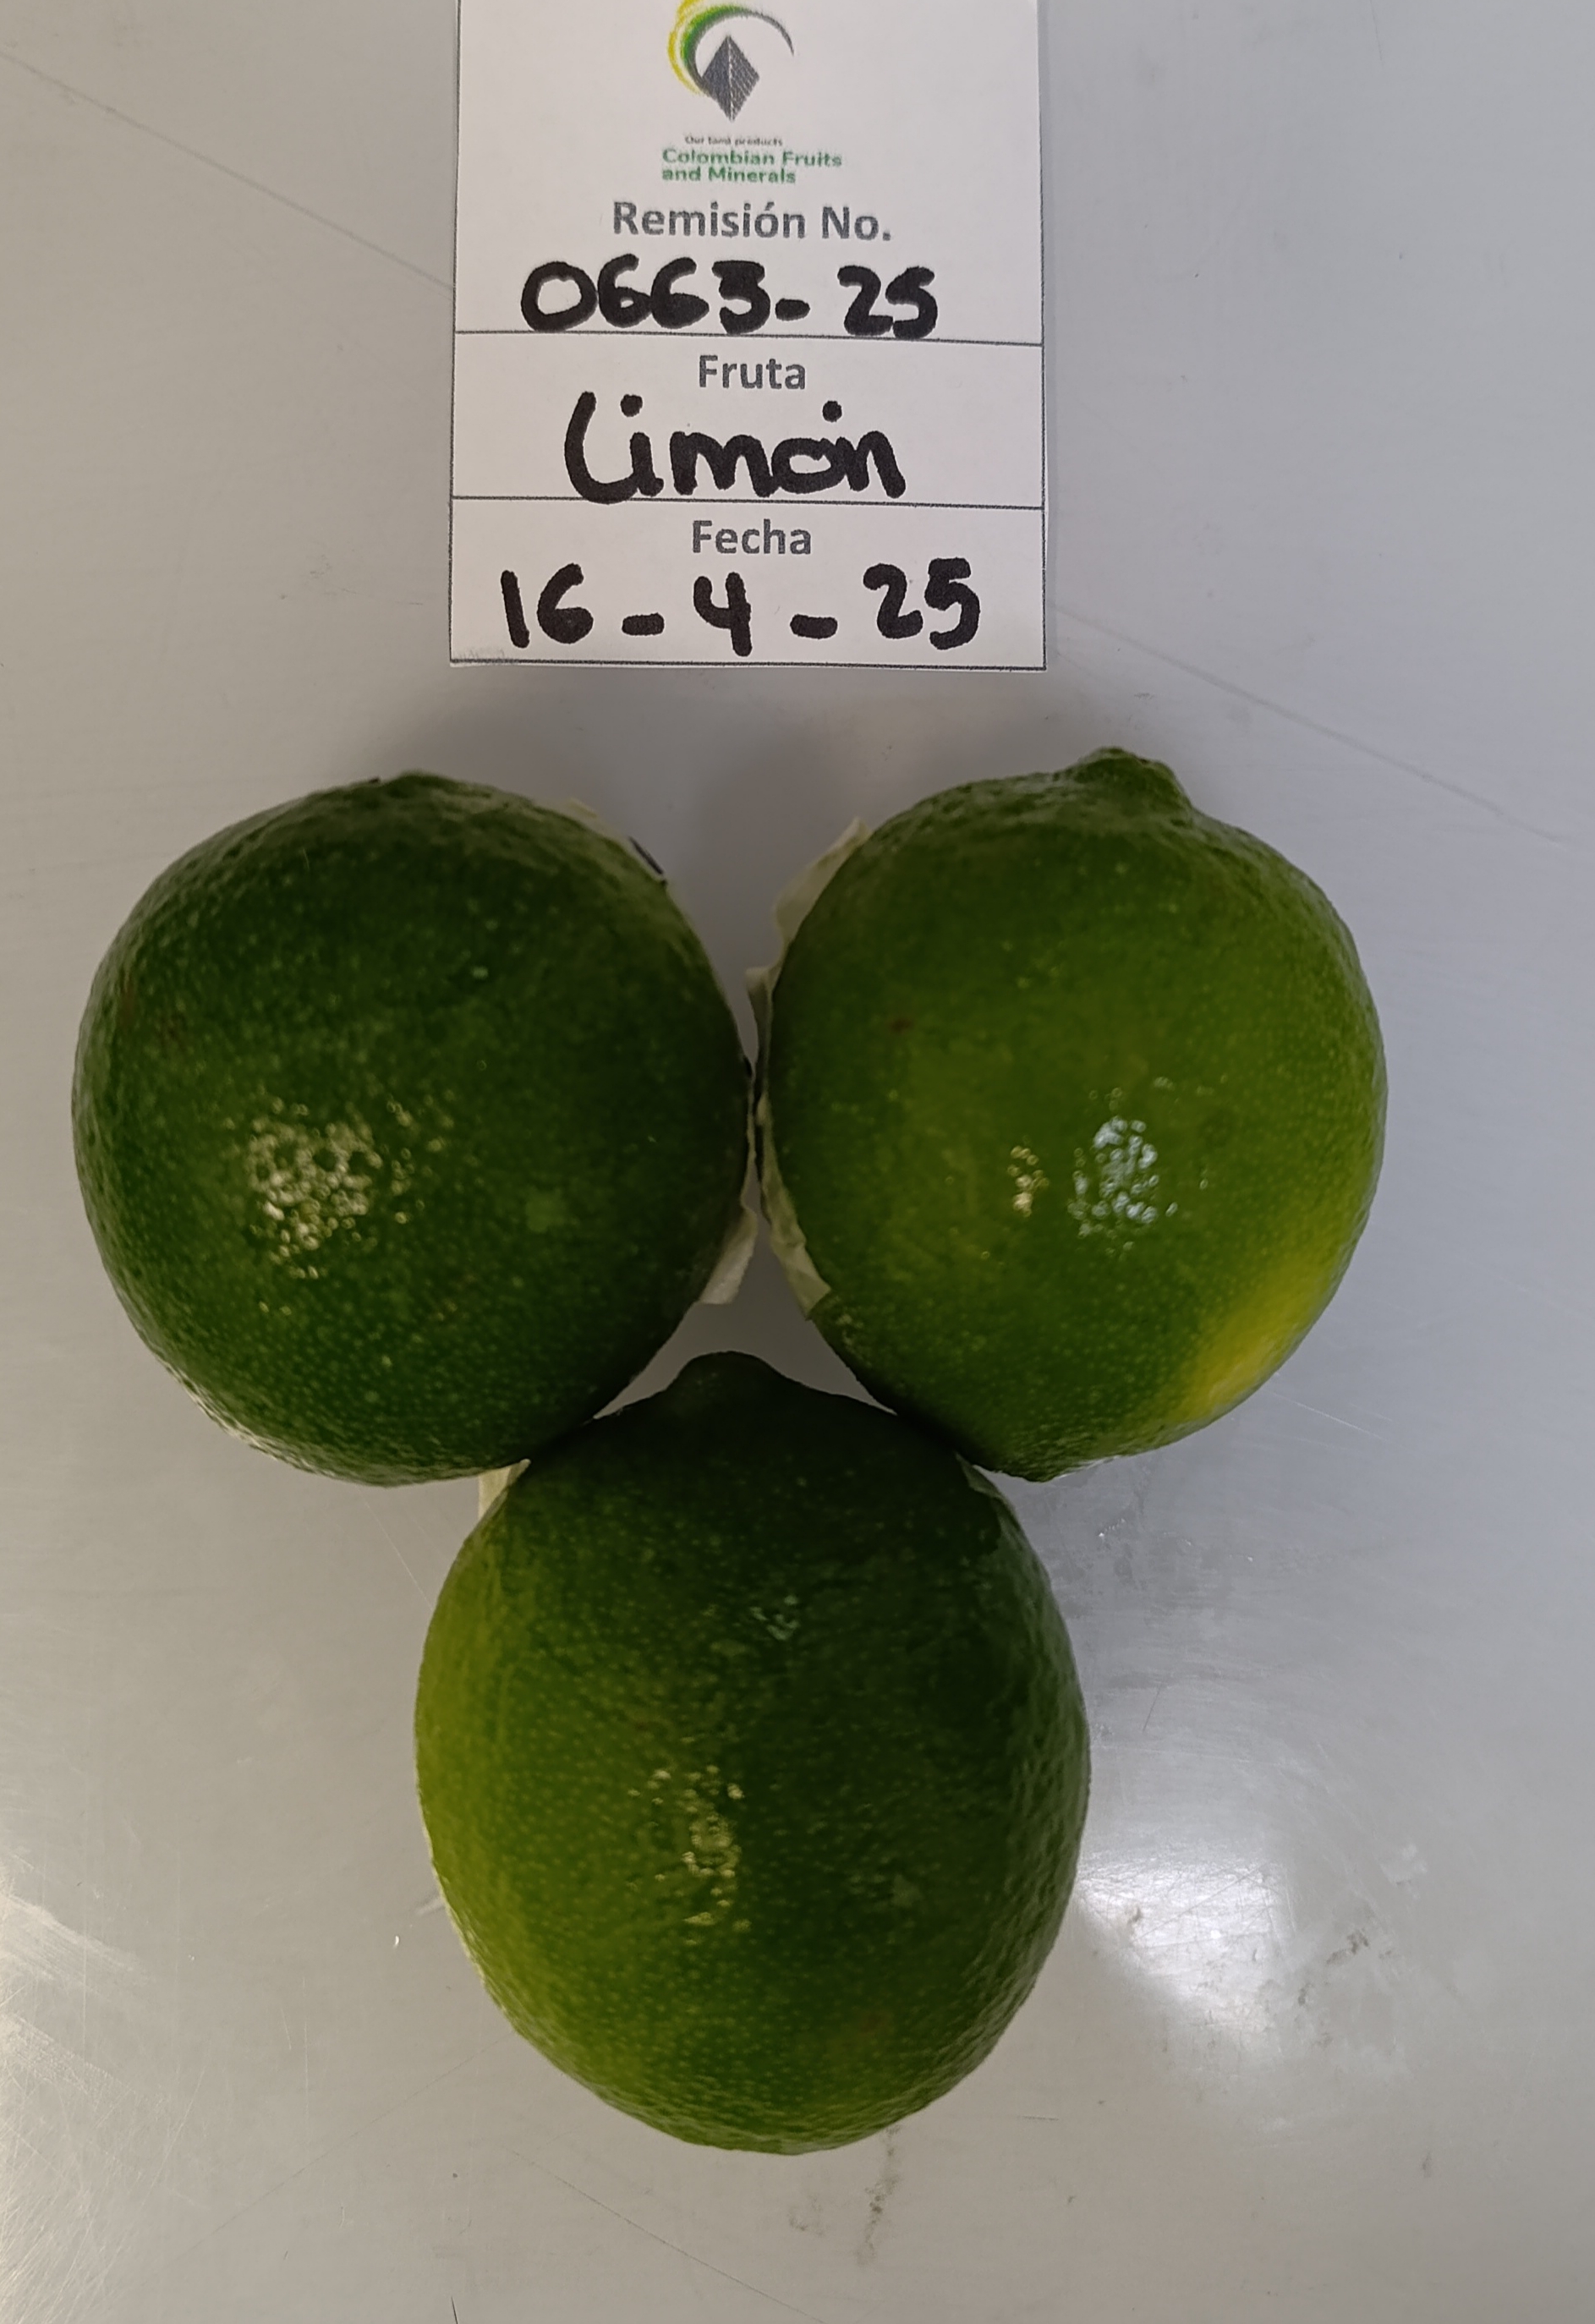 Our land products
Colombian Fruits
and Minerals
Remisión No.
0663-25
Fruta
Limón
Fecha
16-4-25